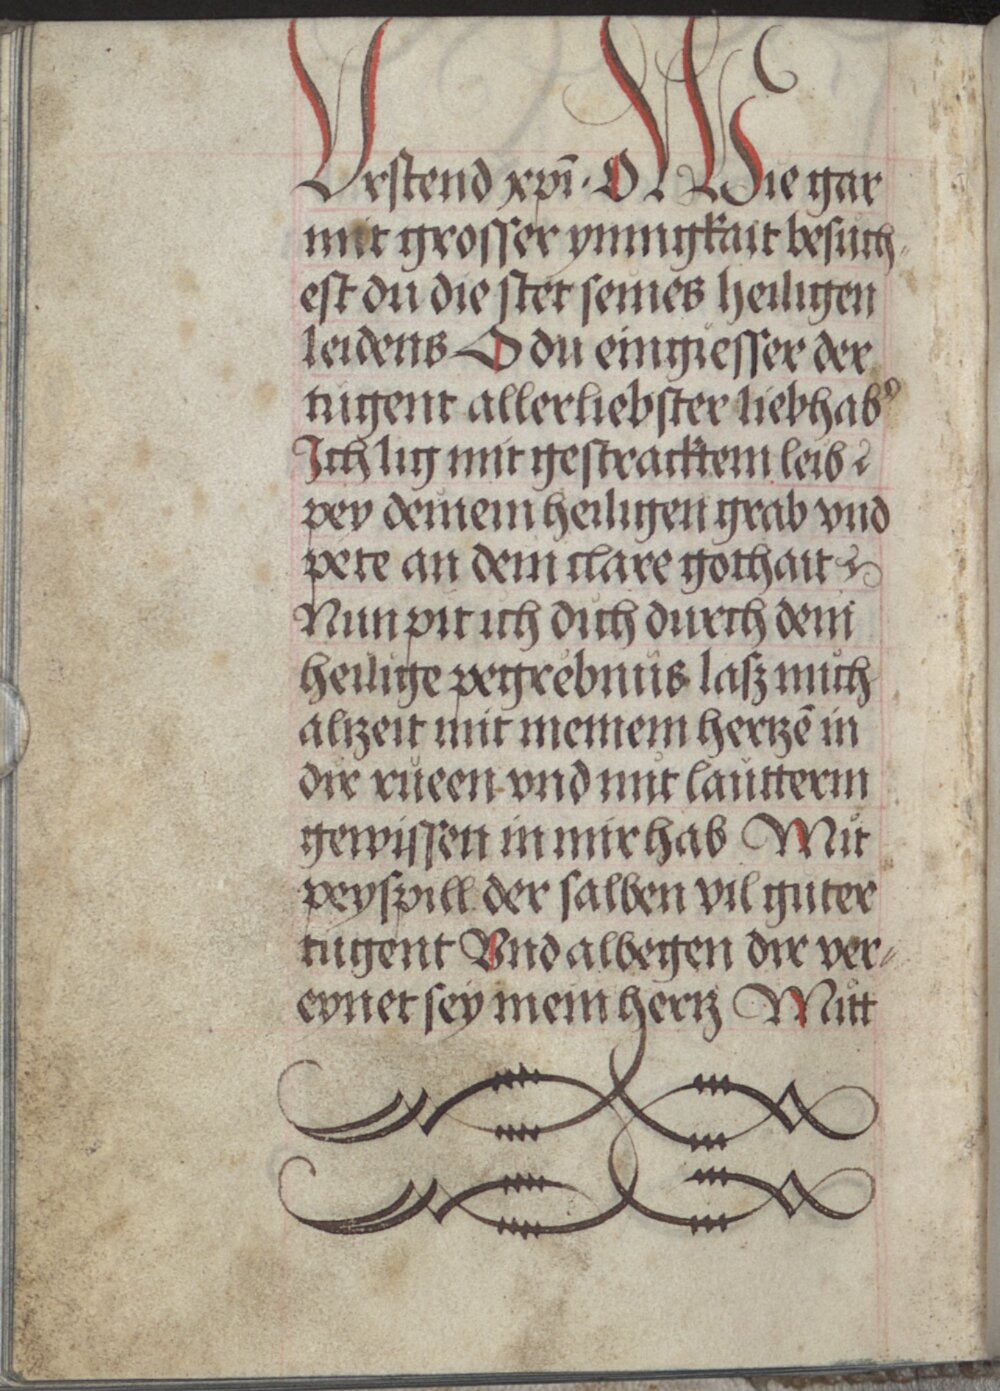 Vrstend xpī · O Wie gar
mit grosser ynnigkait besuch-
est du die stet seines heiligen
leidens O du eingiesser der
tugent allerliebster liebhab᾽
Ich lig mit gestracktem leib
pey deinem heiligen grab vnd
pete an dein clare gothait
Nun pit ich dich durch dein
heilige pegrebnüs lasz mich
alzeit mit meinem hertzē in
dir rueen vnd mit lautterm
gewissen in mir hab Mit
peyspill der salben vil guter
tugent Vnd albegen dir ver-
eynet sey mein hertz Mitt